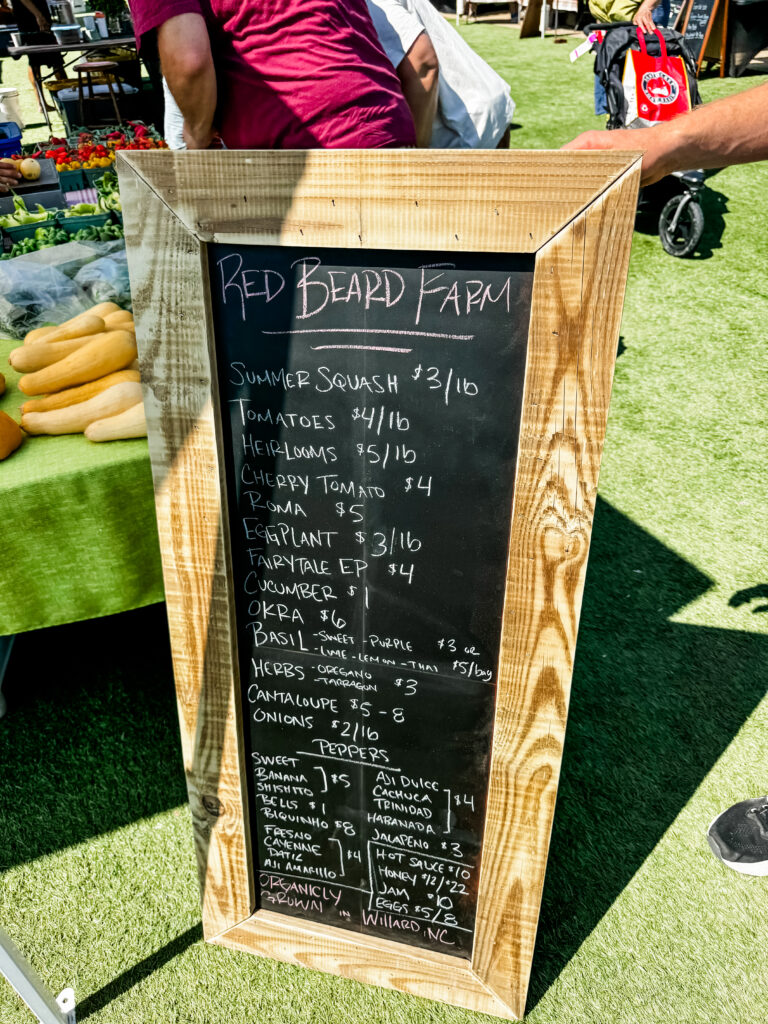 RED BEARD FARM
SUMMER SQUASH $3/lb
TOMATOES $4/lb
HEIRLOOMS $5/lb
CHERRY TOMATO $4
ROMA $5
EGGPLANT $3/lb
FAIRYTALE EP $4
CUCUMBER $1
OKRA $6
BASIL -SWEET -PURPLE $3 OR
-LIME -LEMON -THAI $5/bag
HERBS -OREGANO
-TARRAGON $3
CANTALOUPE $5-8
ONIONS $2/lb
PEPPERS
SWEET
BANANA
SHISHITO $5
BELLS $1
BIQUINHO $8
FRESNO
CAYENNE
DATIL $4
AJI AMARILLO
AJI DULCE
CACHUCA
TRINIDAD $4
HABANADA
JALAPEÑO $3
HOT SAUCE $10
HONEY $12/$22
JAM $10
EGGS $5/8
ORGANICLY
GROWN IN WILLARD, NC